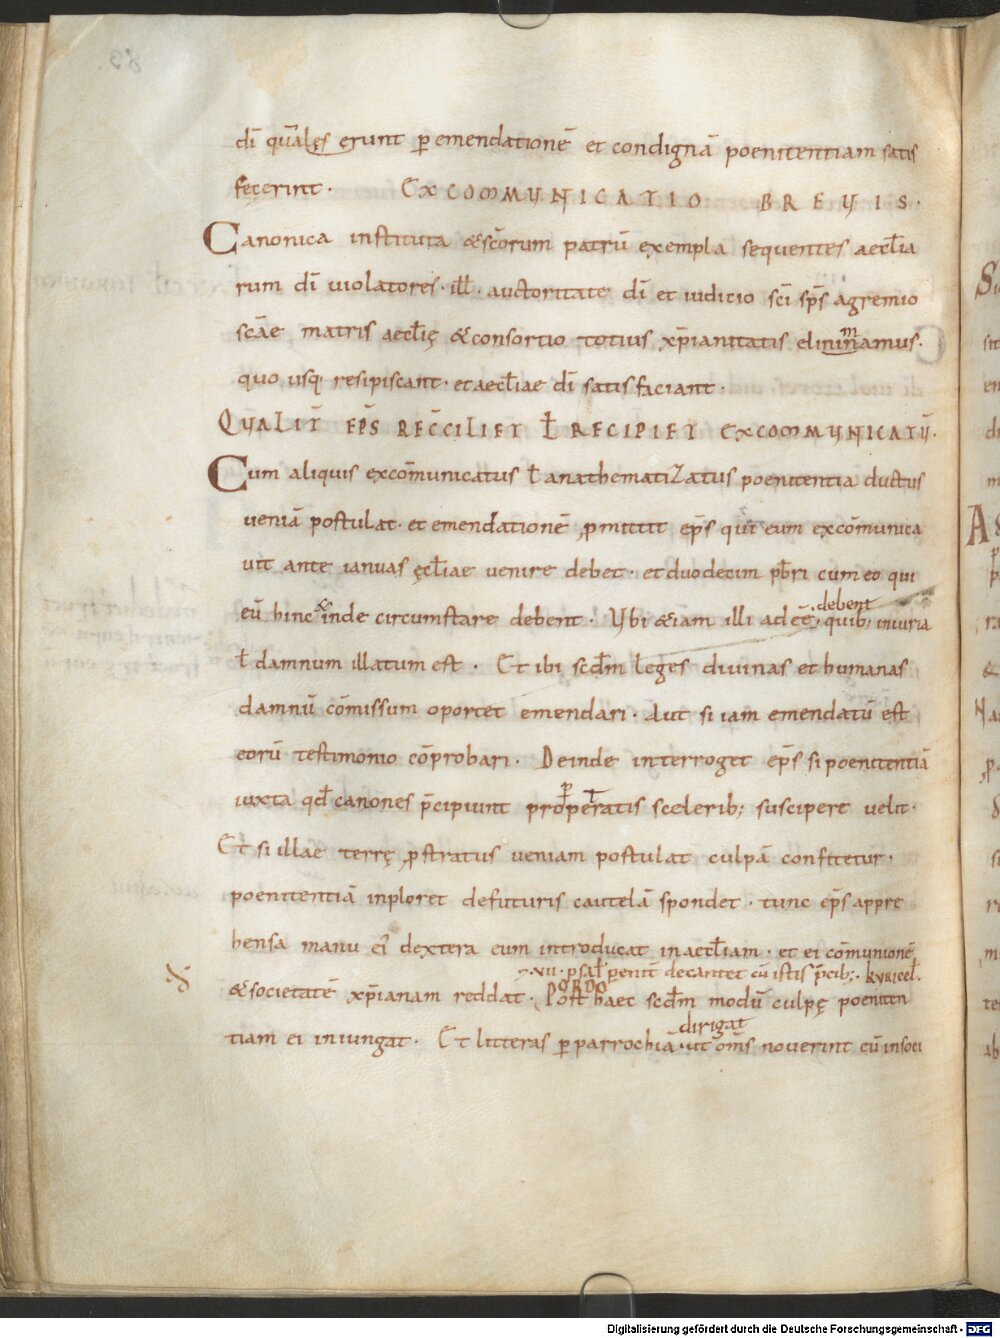 di̅ qua̅les erunt ꝑ emendatione̅ et condigna̅ poenitentiam satis
fecerint. EXCOMMVNICATIO BREVIS.
Canonica instituta &sc̅orum patru̅ exempla sequentes aeccl̅ia
rum di̅ uiolatores. ill̅. auctoritate di̅ et iudicio sc̅i sp̅s agremio
sc̅ae matris aeccl̅ię &consortio totius xp̅ianitatis eliminamus.
quo usq; resipiscant. et aeccl̅iae di̅ satisfaciant.
QVALIT̅ EP̅S REC̅CILIET Ɫ RECIPIET EXCOMMVNICATV̅.
Cum aliquis exco̅municatus ɫ anathematizatus poenitentia ductus
uenia̅ postulat. et emendatione̅ ꝓmittit ep̅s qui eum exco̅munica
uit ante ianuas ęccl̅iae uenire debet. et duodecim pb̅ri cum eo qui
eu̅ hinc & inde circumstare debent. Vbi &iam illi adee̅; debent quib; iniuria
ɫ damnum illatum est. Et ibi scd̅m leges diuinas et humanas
damnu̅ co̅missum oportet emendari. Aut si iam emendatu̅ est
eoru̅ testimonio co̅probari. Deinde interroget ep̅s si poenitentia̅
iuxta qd̅ canones p̅cipiunt pro perpetratis scelerib; suscipere uelit.
Et si illae terrę ꝓstratus ueniam postulat culpa̅ confitetur.
poenitentia̅ inploret defuturis cautela̅ spondet. tunc ep̅s appre
hensa manu ei' dextera eum introducat in aeccl̅iam. et ei co̅munione̅
.vii. psal̅ penit̅ decantet cu̅ istis p̅cib;. kyrieel̅.
ORDO
&societate̅ xp̅ianam reddat. Post haec scd̅m modu̅ culpę poeniten
dirigat
tiam ei iniungat. Et litteras ꝑ parrochia̅. ut om̅s nouerint eu̅ insoci
Digitalisierung gefördert durch die Deutsche Forschungsgemeinschaft - DFG